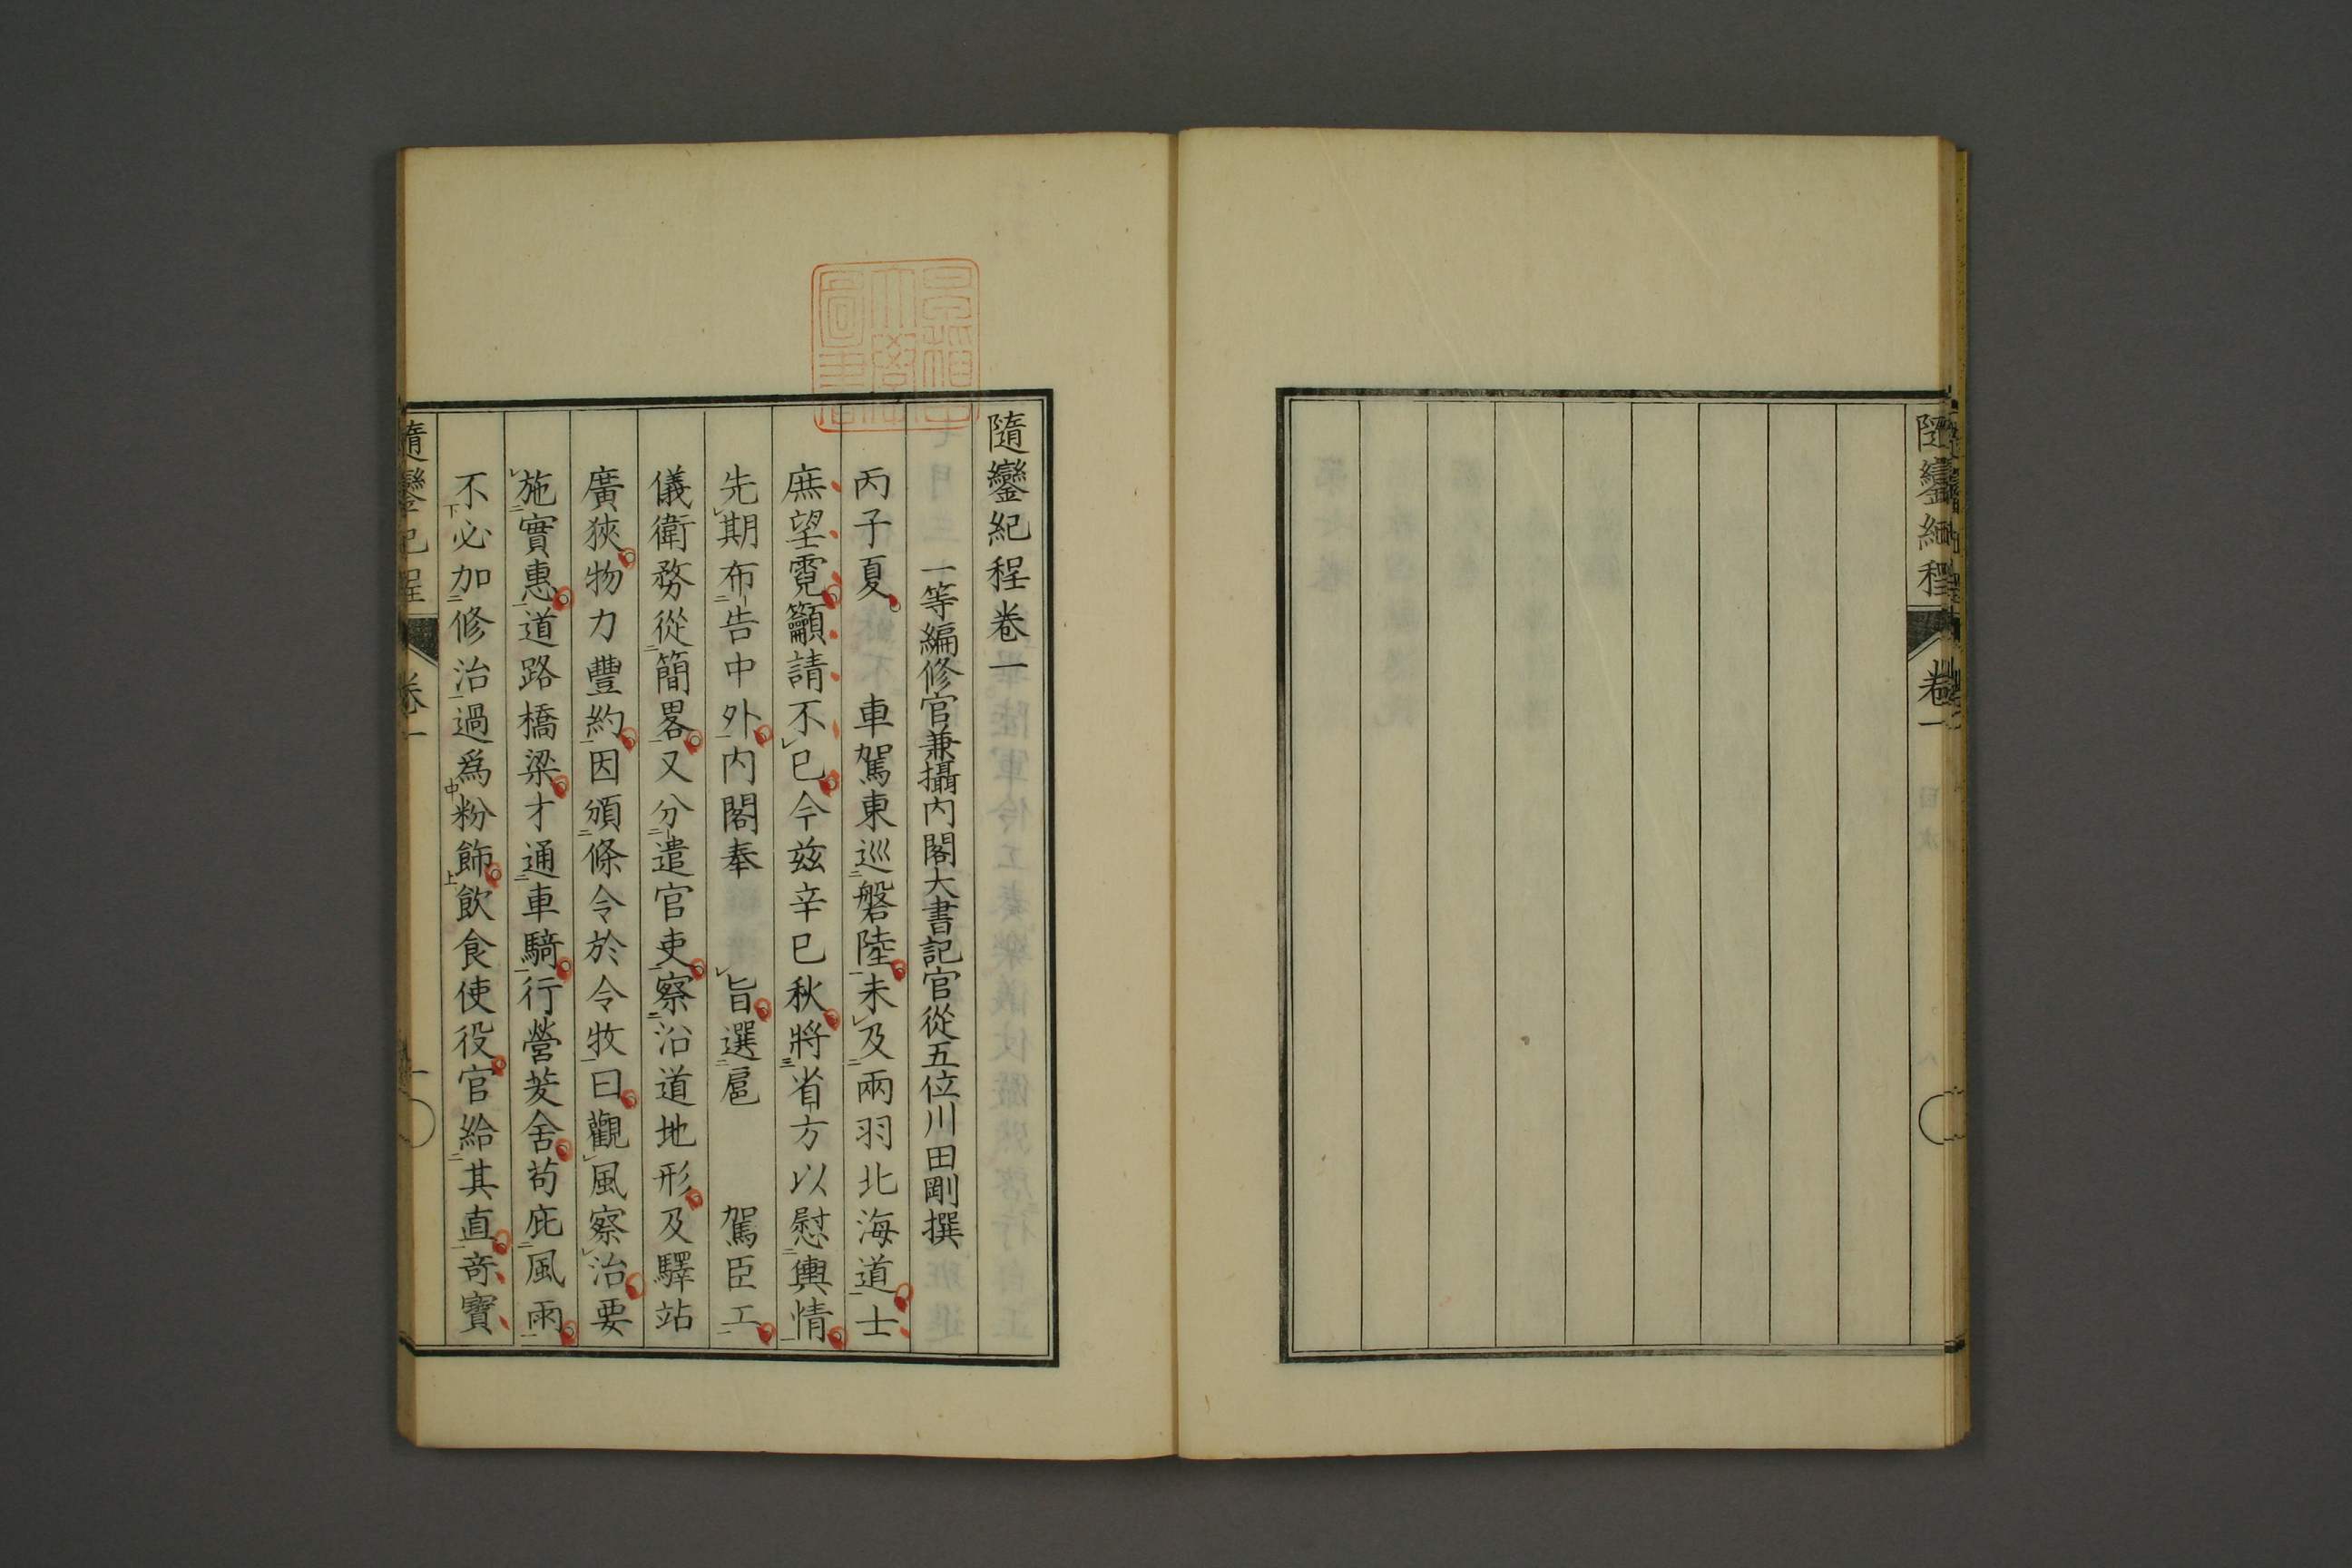 隨鑾紀程
卷一
隨鑾紀程卷一
一等編修官兼攝内閣大書記官從五位川田剛撰
丙子夏車駕東巡磐陸未及兩羽北海道士
庶望霓籲請不已今茲辛巳秋將省方以慰輿情
先期布告中外内閣奉旨選扈駕臣工
儀衛務從簡畧又分遣官吏察沿道地形及驛站
廣狹物力豐約因頒條令於令牧曰觀風察治要
施實惠道路橋梁才通車騎行營茇舍苟庇風雨
不必加修治過爲粉飾飲食使役官給其直奇寶
隨鑾紀程
卷一
一